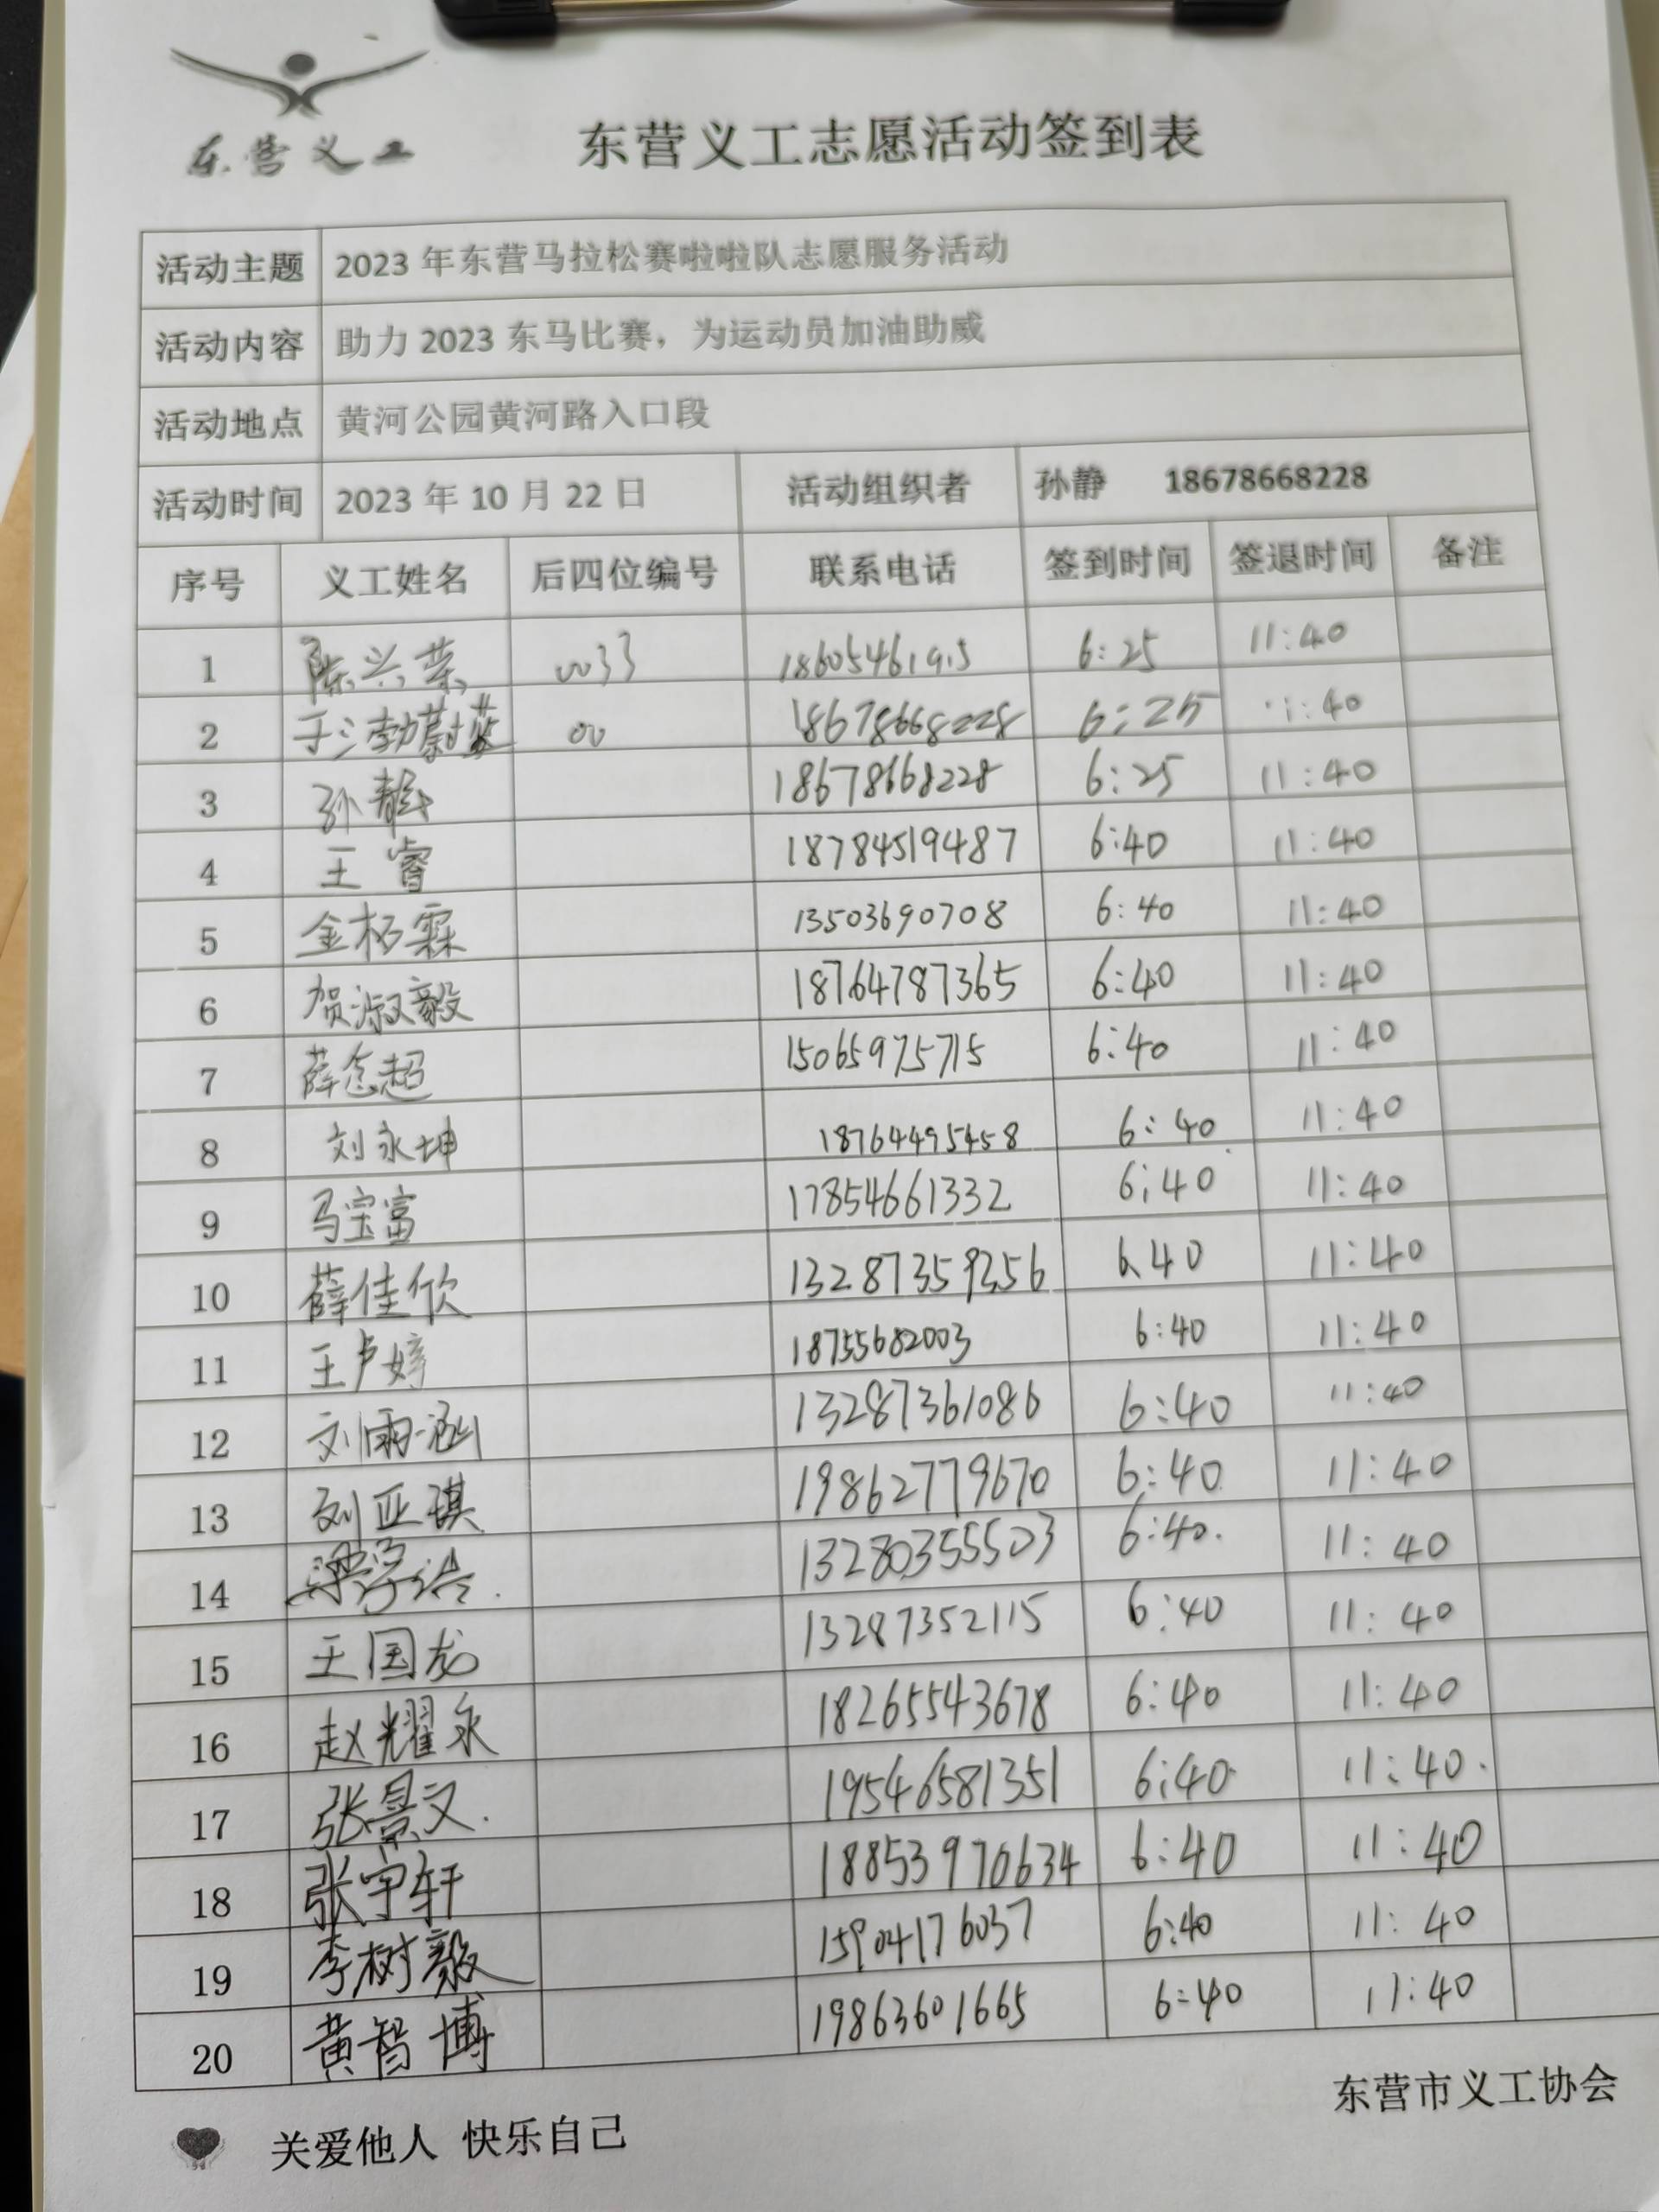 东营义工
东营义工志愿活动签到表
活动主题 2023 年东营马拉松赛啦啦队志愿服务活动
活动内容 助力 2023 东马比赛，为运动员加油助威
活动地点 黄河公园黄河路入口段
活动时间 2023 年 10 月 22 日 活动组织者 孙静 18678668228
序号 义工姓名 后四位编号 联系电话 签到时间 签退时间 备注
1 陈兴荣 0033 18605461915 6:25 11:40
2 于渤蔚蓝 00 18678668228 6:25 11:40
3 孙静 18678668228 6:25 11:40
4 王睿 18784519487 6:40 11:40
5 金杨霖 13503690708 6:40 11:40
6 贺淑毅 18764787365 6:40 11:40
7 薛念超 15065975715 6:40 11:40
8 刘永坤 18764495458 6:40 11:40
9 马宝富 17854661332 6:40 11:40
10 薛佳欣 6:40 11:40
11 王卢婷 18755682003 6:40 11:40
12 刘雨涵 13287361086 6:40 11:40
13 刘亚琪 19862779670 6:40 11:40
14 梁学浩 13280355503 6:40 11:40
15 王国龙 13287352115 6:40 11:40
16 赵耀永 18265543678 6:40 11:40
17 张景文 19546581351 6:40 11:40
18 张宇轩 18853970634 6:40 11:40
19 李树毅 15904176037 6:40 11:40
20 黄智博 19863601665 6:40 11:40
东营市义工协会
关爱他人 快乐自己